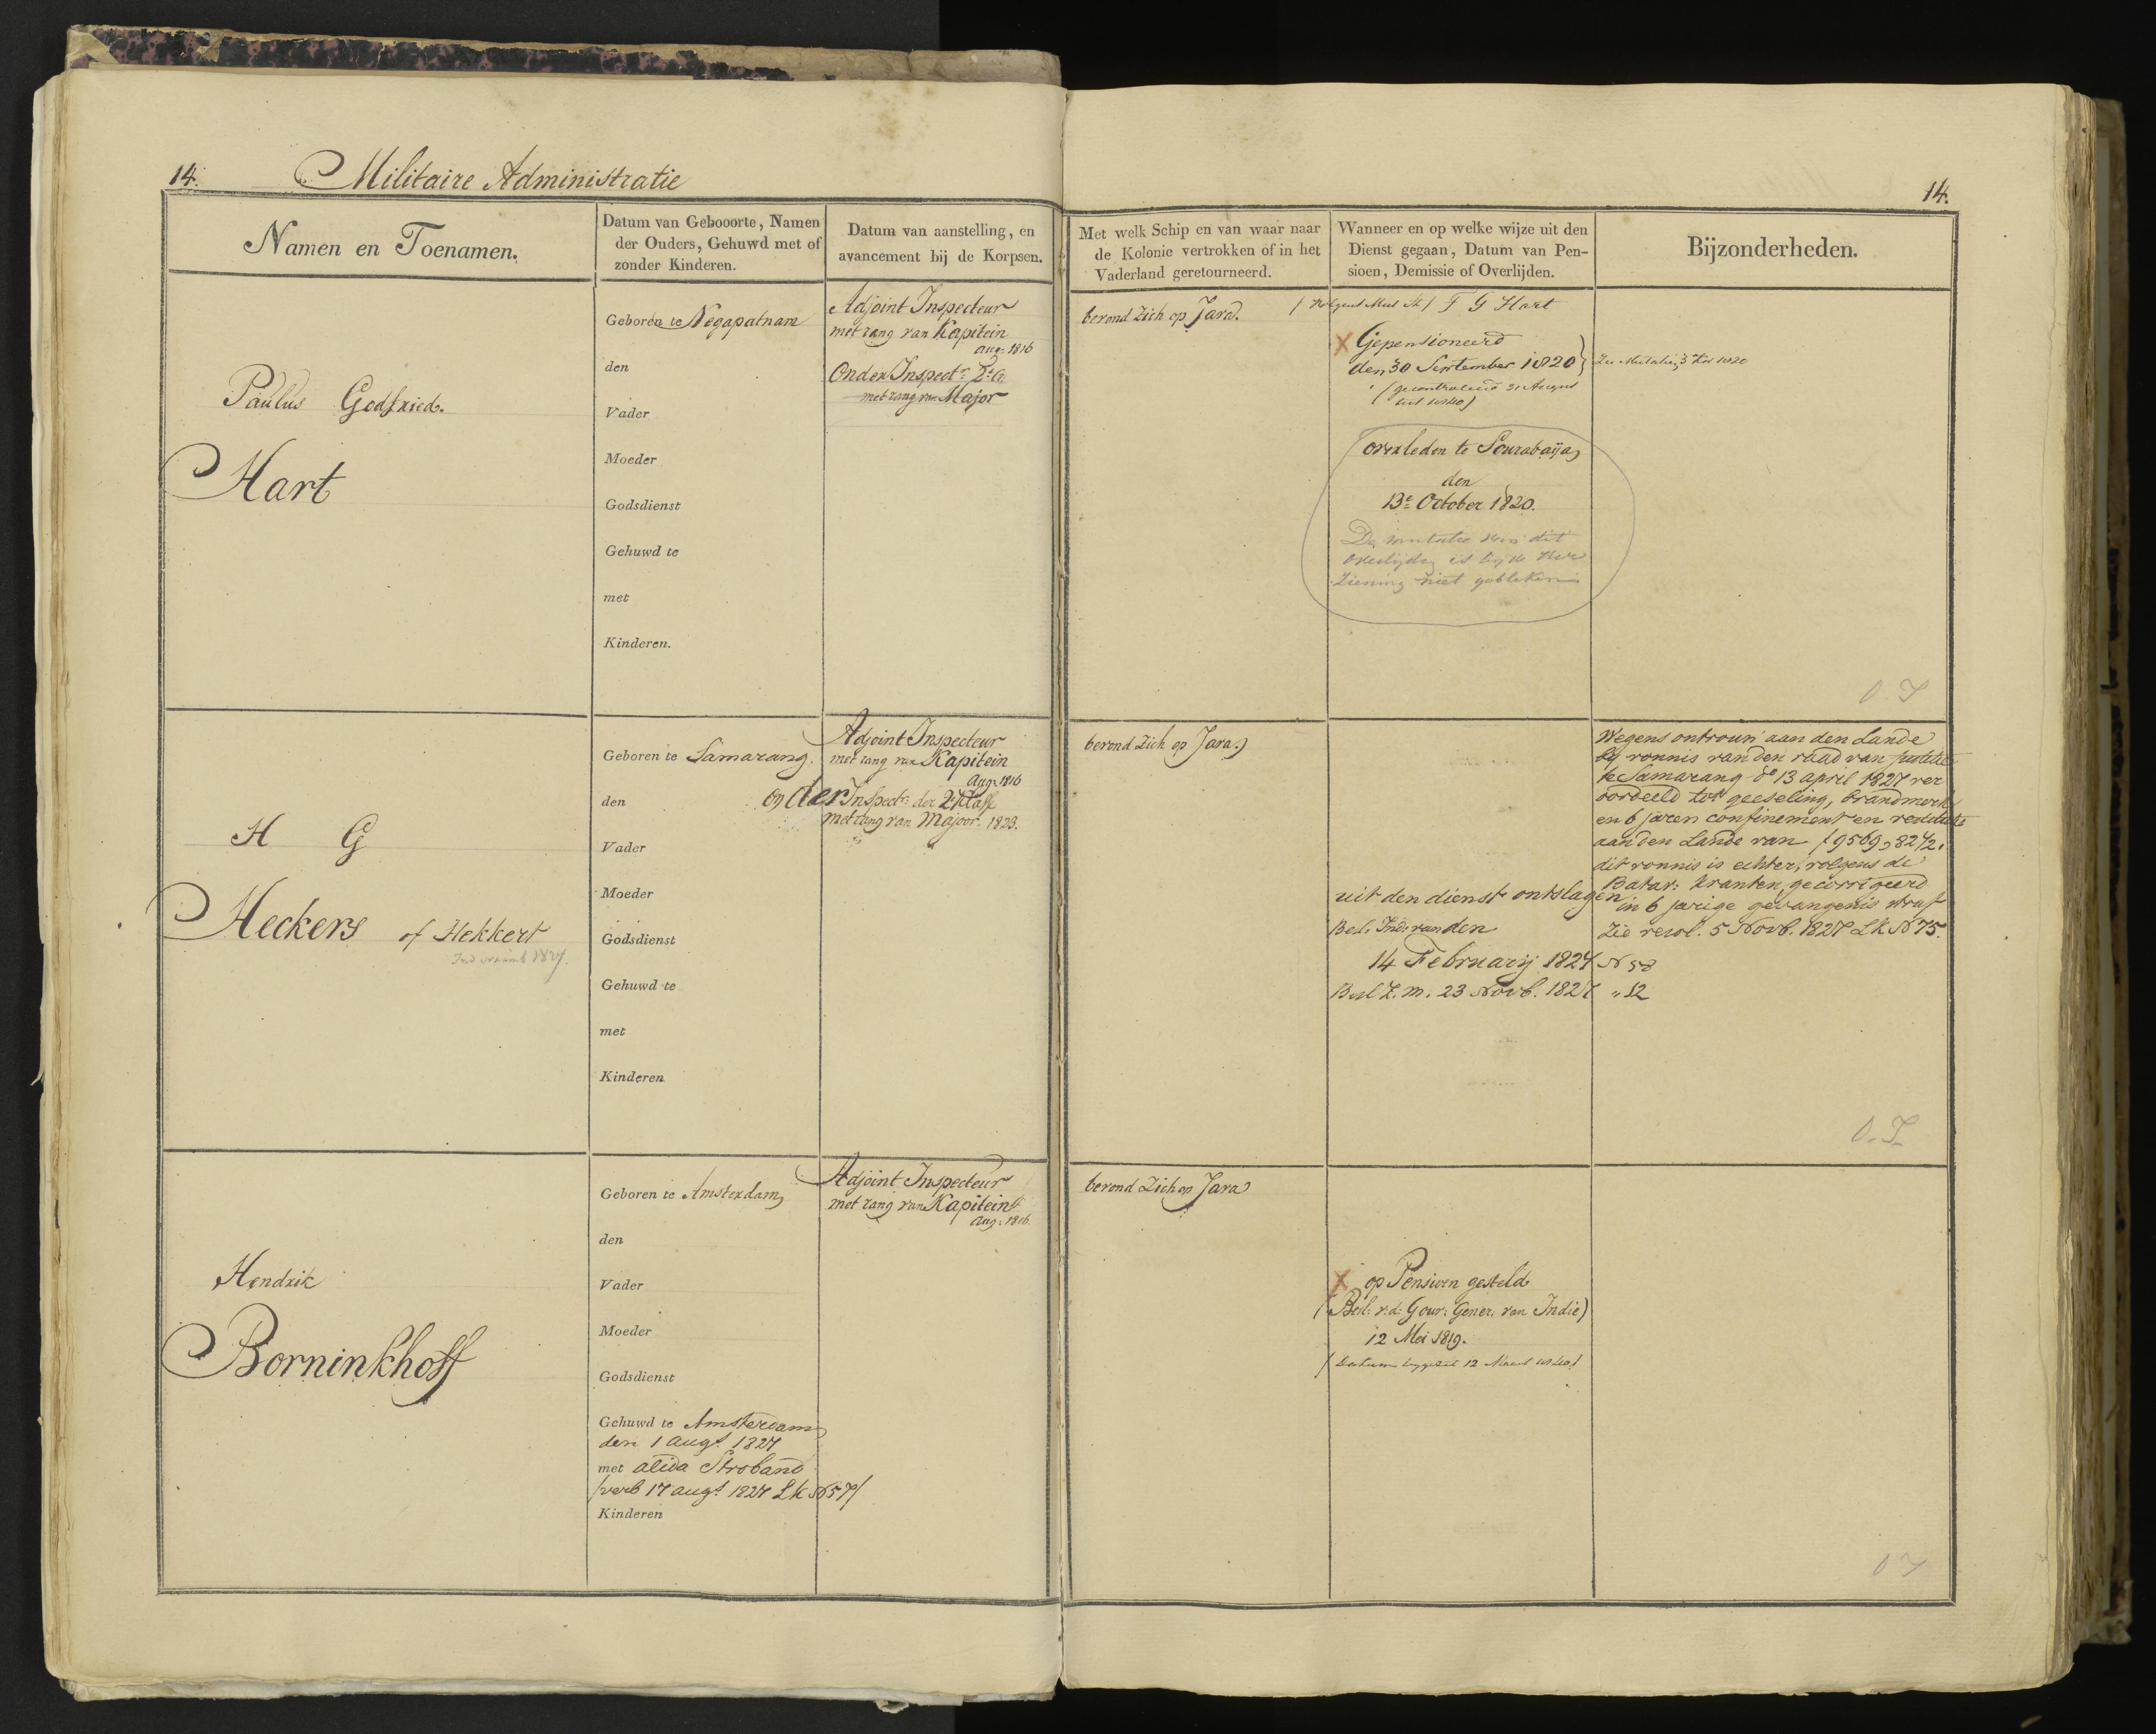 14.
Militaire Administratie
14.
Namen en Toenamen.
Datum van Gebooorte, Namen
der Ouders, Gehuwd met of
zonder Kinderen.
Datum van aanstelling, en
avancement bij de Korpsen.
Met welk Schip en van waar naar
de Kolonie vertrokken of in het
Vaderland geretourneerd.
Wanneer en op welke wijze uit den
Dienst gegaan, Datum van Pen-
sioen, Demissie of Overlijden.
Bijzonderheden.
Paulus Godfried.
Hart
Geboren te Negapatnam
den
Vader
Moeder
Godsdienst
Gehuwd te
met
Kinderen.
Adjoint Inspecteur
met rang van Kapitein
Aug: 1816
Onder Inspectr 2e Cl:
met rang van Major
bevond zich op Java.
F G Hart
X Gepensioneerd
den 30 September 1820}
overleden te Sourabaija
den
13e October 1820.
De mutatie van dit
overlijden is bij de Her
ziening niet gebleken
O. I
H G
Heckers of Hekkert
Geboren te Samarang.
den
Vader
Moeder
Godsdienst
Gehuwd te
met
Kinderen
Adjoint Inspecteur
met rang van Kapitein
Aug: 1816
Onder Inspectr: der 2e Klasse
met rang van Majoor. 1823.
bevond zich op Java.)
uit den dienst ontslagen
Besl: Ind: van den
14 February 1827 N 58
Besl Z. M. 23 Novb. 1827 " 12
Wegens ontrouw aan den Lande
bij vonnis van den raad van justitie
te Samarang de 13 april 1827 ver
oordeeld tot geeseling, brandmerk
en 6 jaren confinement en restitutie
aan den Lande van f 9569,82 1/2.
dit vonnis is echter, volgens de
Batav: kranten, gecorrigeerd
in 6 jarige gevangenis straf
Zie resol. 5 Novb. 1827 Lk N 75.
O. I.
Hendrik
Borninkhoff
Geboren te Amsterdam
den
Vader
Moeder
Godsdienst
Gehuwd te Amsterdam
den 1 augt 1827
met alida Stroband
/verb 17 augt 1827 Lk N 57/
Kinderen
Adjoint Inspecteur
met rang van Kapitein
Aug: 1816.
bevond zich op Java
X op Pensioen gesteld
(Besl: v.d. Gouv: Gener: van Indie)
12 Mei 1819.
O I